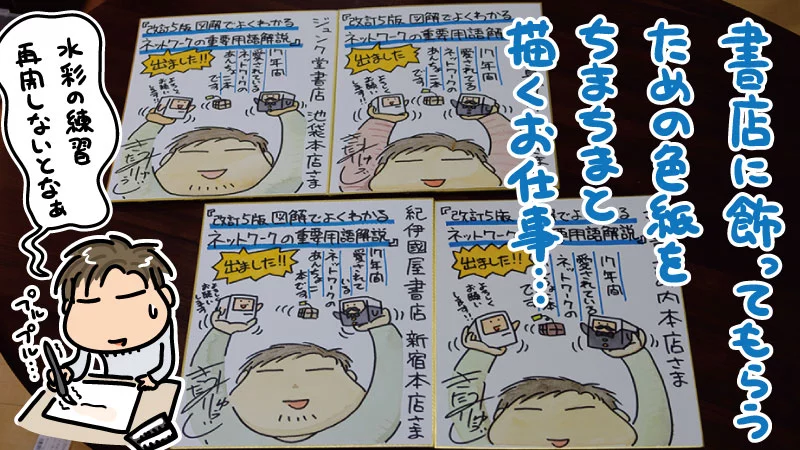 書店に飾ってもらう
ための色紙を
ちまちまと
描くお仕事…
水彩の練習
再開しないとなぁ
プルプル…
『改訂5版 図解でよくわかる
ネットワークの重要用語解説』
出ました!!
17年間
愛されている
ネットワークの
あんちょ本
です。
よろしく
お願い
します!!
ジュンク堂書店 池袋本店さま
『改訂5版 図解でよくわかる
ネットワークの重要用語解
出ました!!
17年間
愛されている
ネットワークの
あんちょ本
です。
『改訂5版 図解でよくわかる
ネットワークの重要用語解説』
出ました!!
17年間
愛されて
いる
ネットワークの
あんちょ
本です。
よろしく
お願い
します!!
紀伊國屋書店 新宿本店さま
『改訂5版 図解でよくわかる
ネットワーク
要用語解説』
出ました!!
17年間
愛されている
ネットワークの
内本店さま